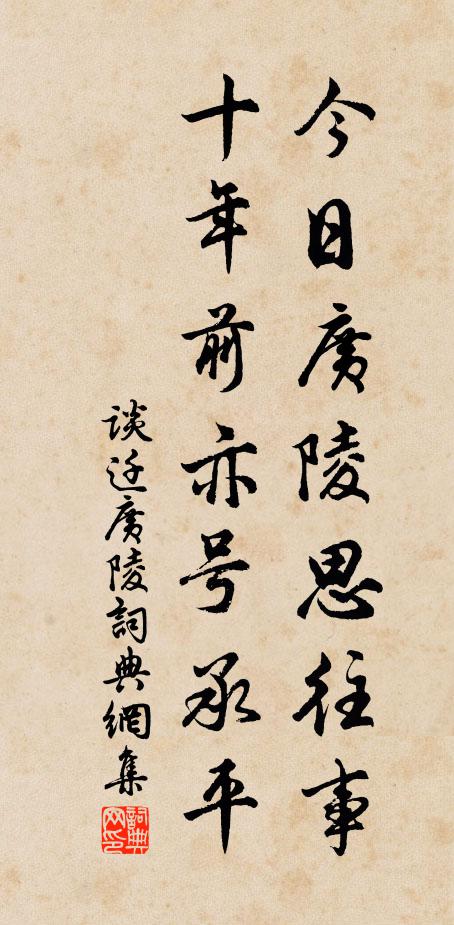 今日廣陵思往事
十年前亦号承平
談迁廣陵詞典網集
詞典网印